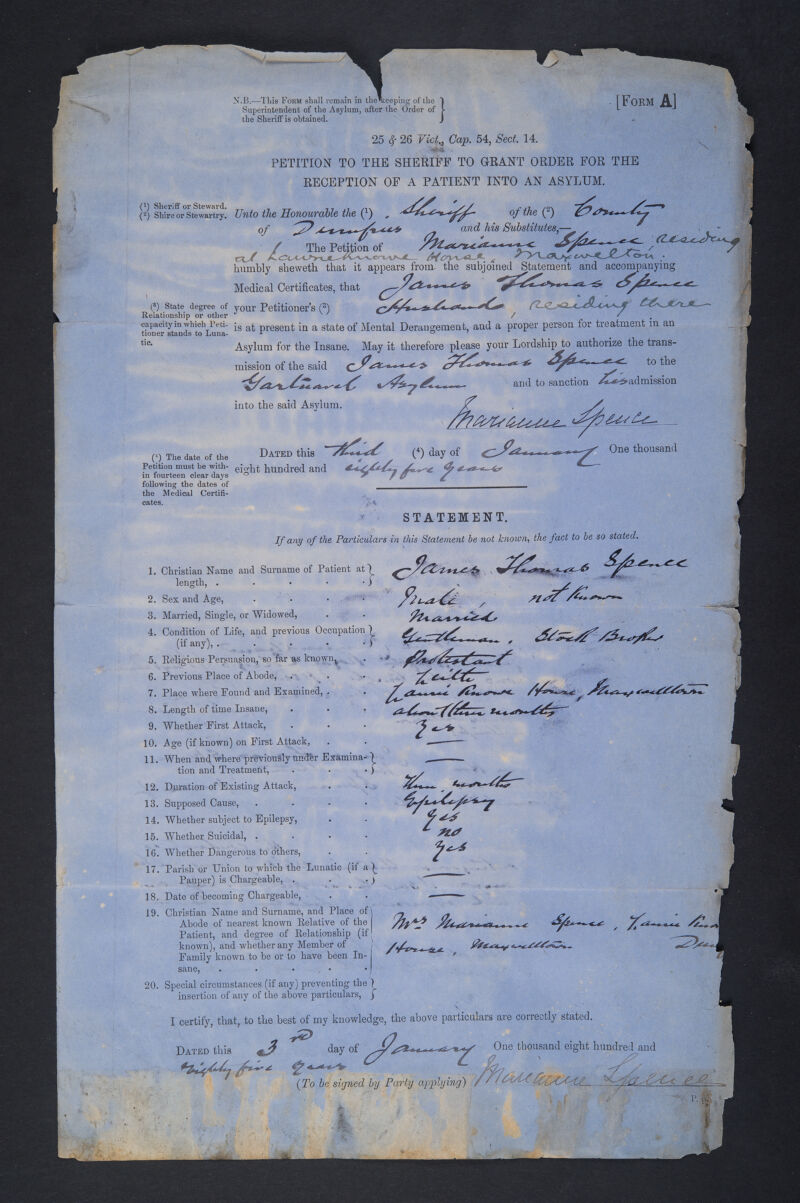 N.B.—This FORM shall remain in the keeping of the
Superintendent of the Asylum, after the Order of
the Sheriff is obtained.
[FORM A]
25 & 26 Vict., Cap. 54, Sect. 14.
PETITION TO THE SHERIFF TO GRANT ORDER FOR THE
RECEPTION OF A PATIENT INTO AN ASYLUM.
(1) Sheriff or Steward.
(2) Shire or Stewartry.
Unto the Honourable the (1) Sheriff of the (2) County
of Dumfries and his Substitutes,—
The Petition of Marianne Spence, residing
at House, Maxwelton.
humbly sheweth that it appears from the subjoined Statement and accompanying
Medical Certificates, that James Thomas Spence
(3) State degree of
Relationship or other
capacity in which Peti-
tioner stands to Luna-
tic.
your Petitioner's (3) Husband, residing there
is at present in a state of Mental Derangement, and a proper person for treatment in an
Asylum for the Insane. May it therefore please your Lordship to authorize the trans-
mission of the said James Thomas Spence to the
Gartnavel Asylum and to sanction his admission
into the said Asylum.
Marianne Spence
(4) The date of the
Petition must be with-
in fourteen clear days
following the dates of
the Medical Certifi-
cates.
DATED this third (4) day of January One thousand
eight hundred and eighty five years
STATEMENT.
If any of the Particulars in this Statement be not known, the fact to be so stated.
1. Christian Name and Surname of Patient at length, . James Thomas Spence
2. Sex and Age, Male, not known
3. Married, Single, or Widowed, Married
4. Condition of Life, and previous Occupation (if any), . Gentleman. Stock Broker
5. Religious Persuasion, so far as known, Protestant
6. Previous Place of Abode, Leith
7. Place where Found and Examined, . House, Maxwelltown
8. Length of time Insane, about three months
9. Whether First Attack, Yes
10. Age (if known) on First Attack, —
11. When and where previously under Examina-tion and Treatment, —
12. Duration of Existing Attack, Three months
13. Supposed Cause, Epilepsy
14. Whether subject to Epilepsy, Yes
15. Whether Suicidal, . no
16. Whether Dangerous to others, Yes
17. Parish or Union to which the Lunatic (if a Pauper) is Chargeable, . —
18. Date of becoming Chargeable, —
19. Christian Name and Surname, and Place of
Abode of nearest known Relative of the Mrs Marianne Spence,
Patient, and degree of Relationship (if
known), and whether any Member of House, Maxwelltown
Family known to be or to have been In-
sane,
20. Special circumstances (if any) preventing the
insertion of any of the above particulars,
I certify, that, to the best of my knowledge, the above particulars are correctly stated.
DATED this 3rd day of January One thousand eight hundred and
eighty five years
(To be signed by Party applying) Marianne Spence